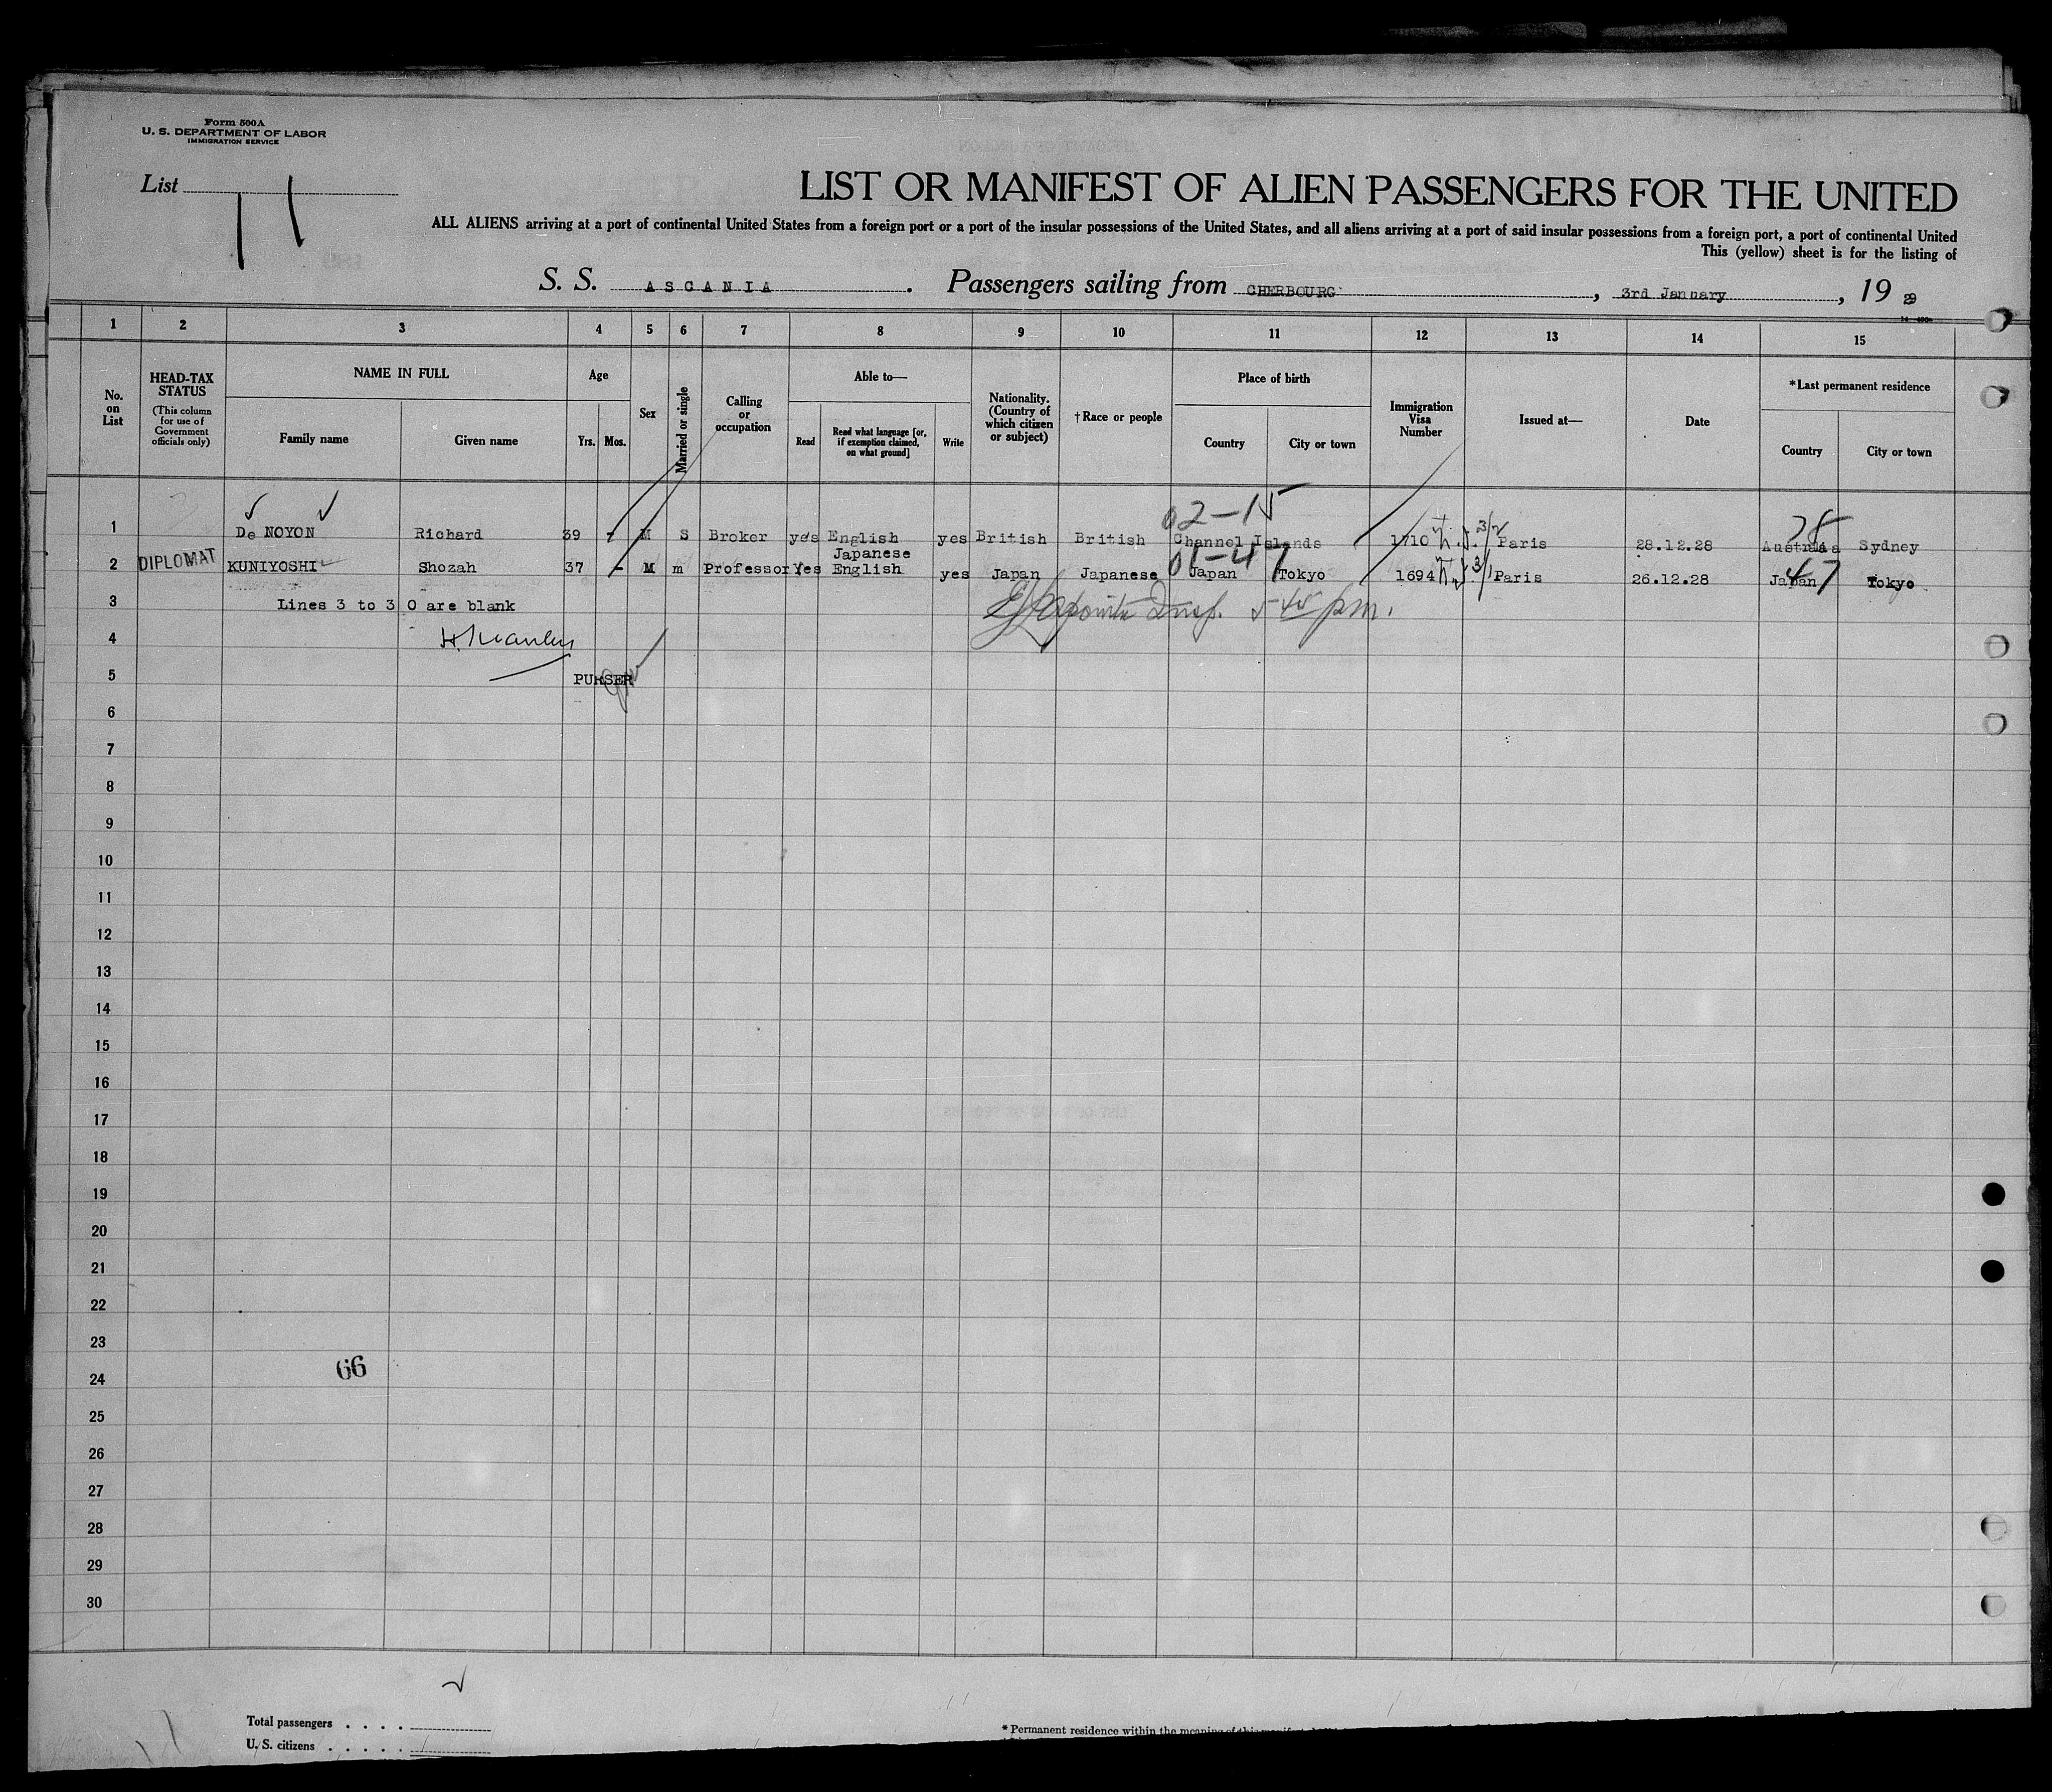 Form 500A
U. S. DEPARTMENT OF LABOR
IMMIGRATION SERVICE
List 11
LIST OR MANIFEST OF ALIEN PASSENGERS FOR THE UNITED
ALL ALIENS arriving at a port of continental United States from a foreign port or a port of the insular possessions of the United States, and all aliens arriving at a port of said insular possessions from a foreign port, a port of continental United
This (yellow) sheet is for the listing of
S. S. ASCANIA. Passengers sailing from CHERBOURG, 3rd January, 19 29
1 2 3 4 5 6 7 8 9 10 11 12 13 14 15
No. on List
HEAD-TAX STATUS
(This column for use of Government officials only)
NAME IN FULL
Family name
Given name
Age
Yrs. Mos.
Sex
Married or single
Calling or occupation
Able to—
Read
Read what language [or, if exemption claimed, on what ground]
Write
Nationality. (Country of which citizen or subject)
†Race or people
Place of birth
Country
City or town
Immigration Visa Number
Issued at—
Date
*Last permanent residence
Country
City or town
02-15
1 De NOYON Richard 39 - M S Broker yes English yes British British Channel Islands 1710 Paris 28.12.28 Australia Sydney
01-47
2 DIPLOMAT KUNIYOSHI Shozah 37 - M m Professor Yes Japanese English yes Japan Japanese Japan Tokyo 1694 Paris 26.12.28 Japan 47 Tokyo
3 Lines 3 to 3 0 are blank 5 45 pm.
4 H. Manley
5 PURSER
6
7
8
9
10
11
12
13
14
15
16
17
18
19
20
21
22
23
66
24
25
26
27
28
29
30
Total passengers . . . .
U. S. citizens . . . . .
* Permanent residence within the meaning of this